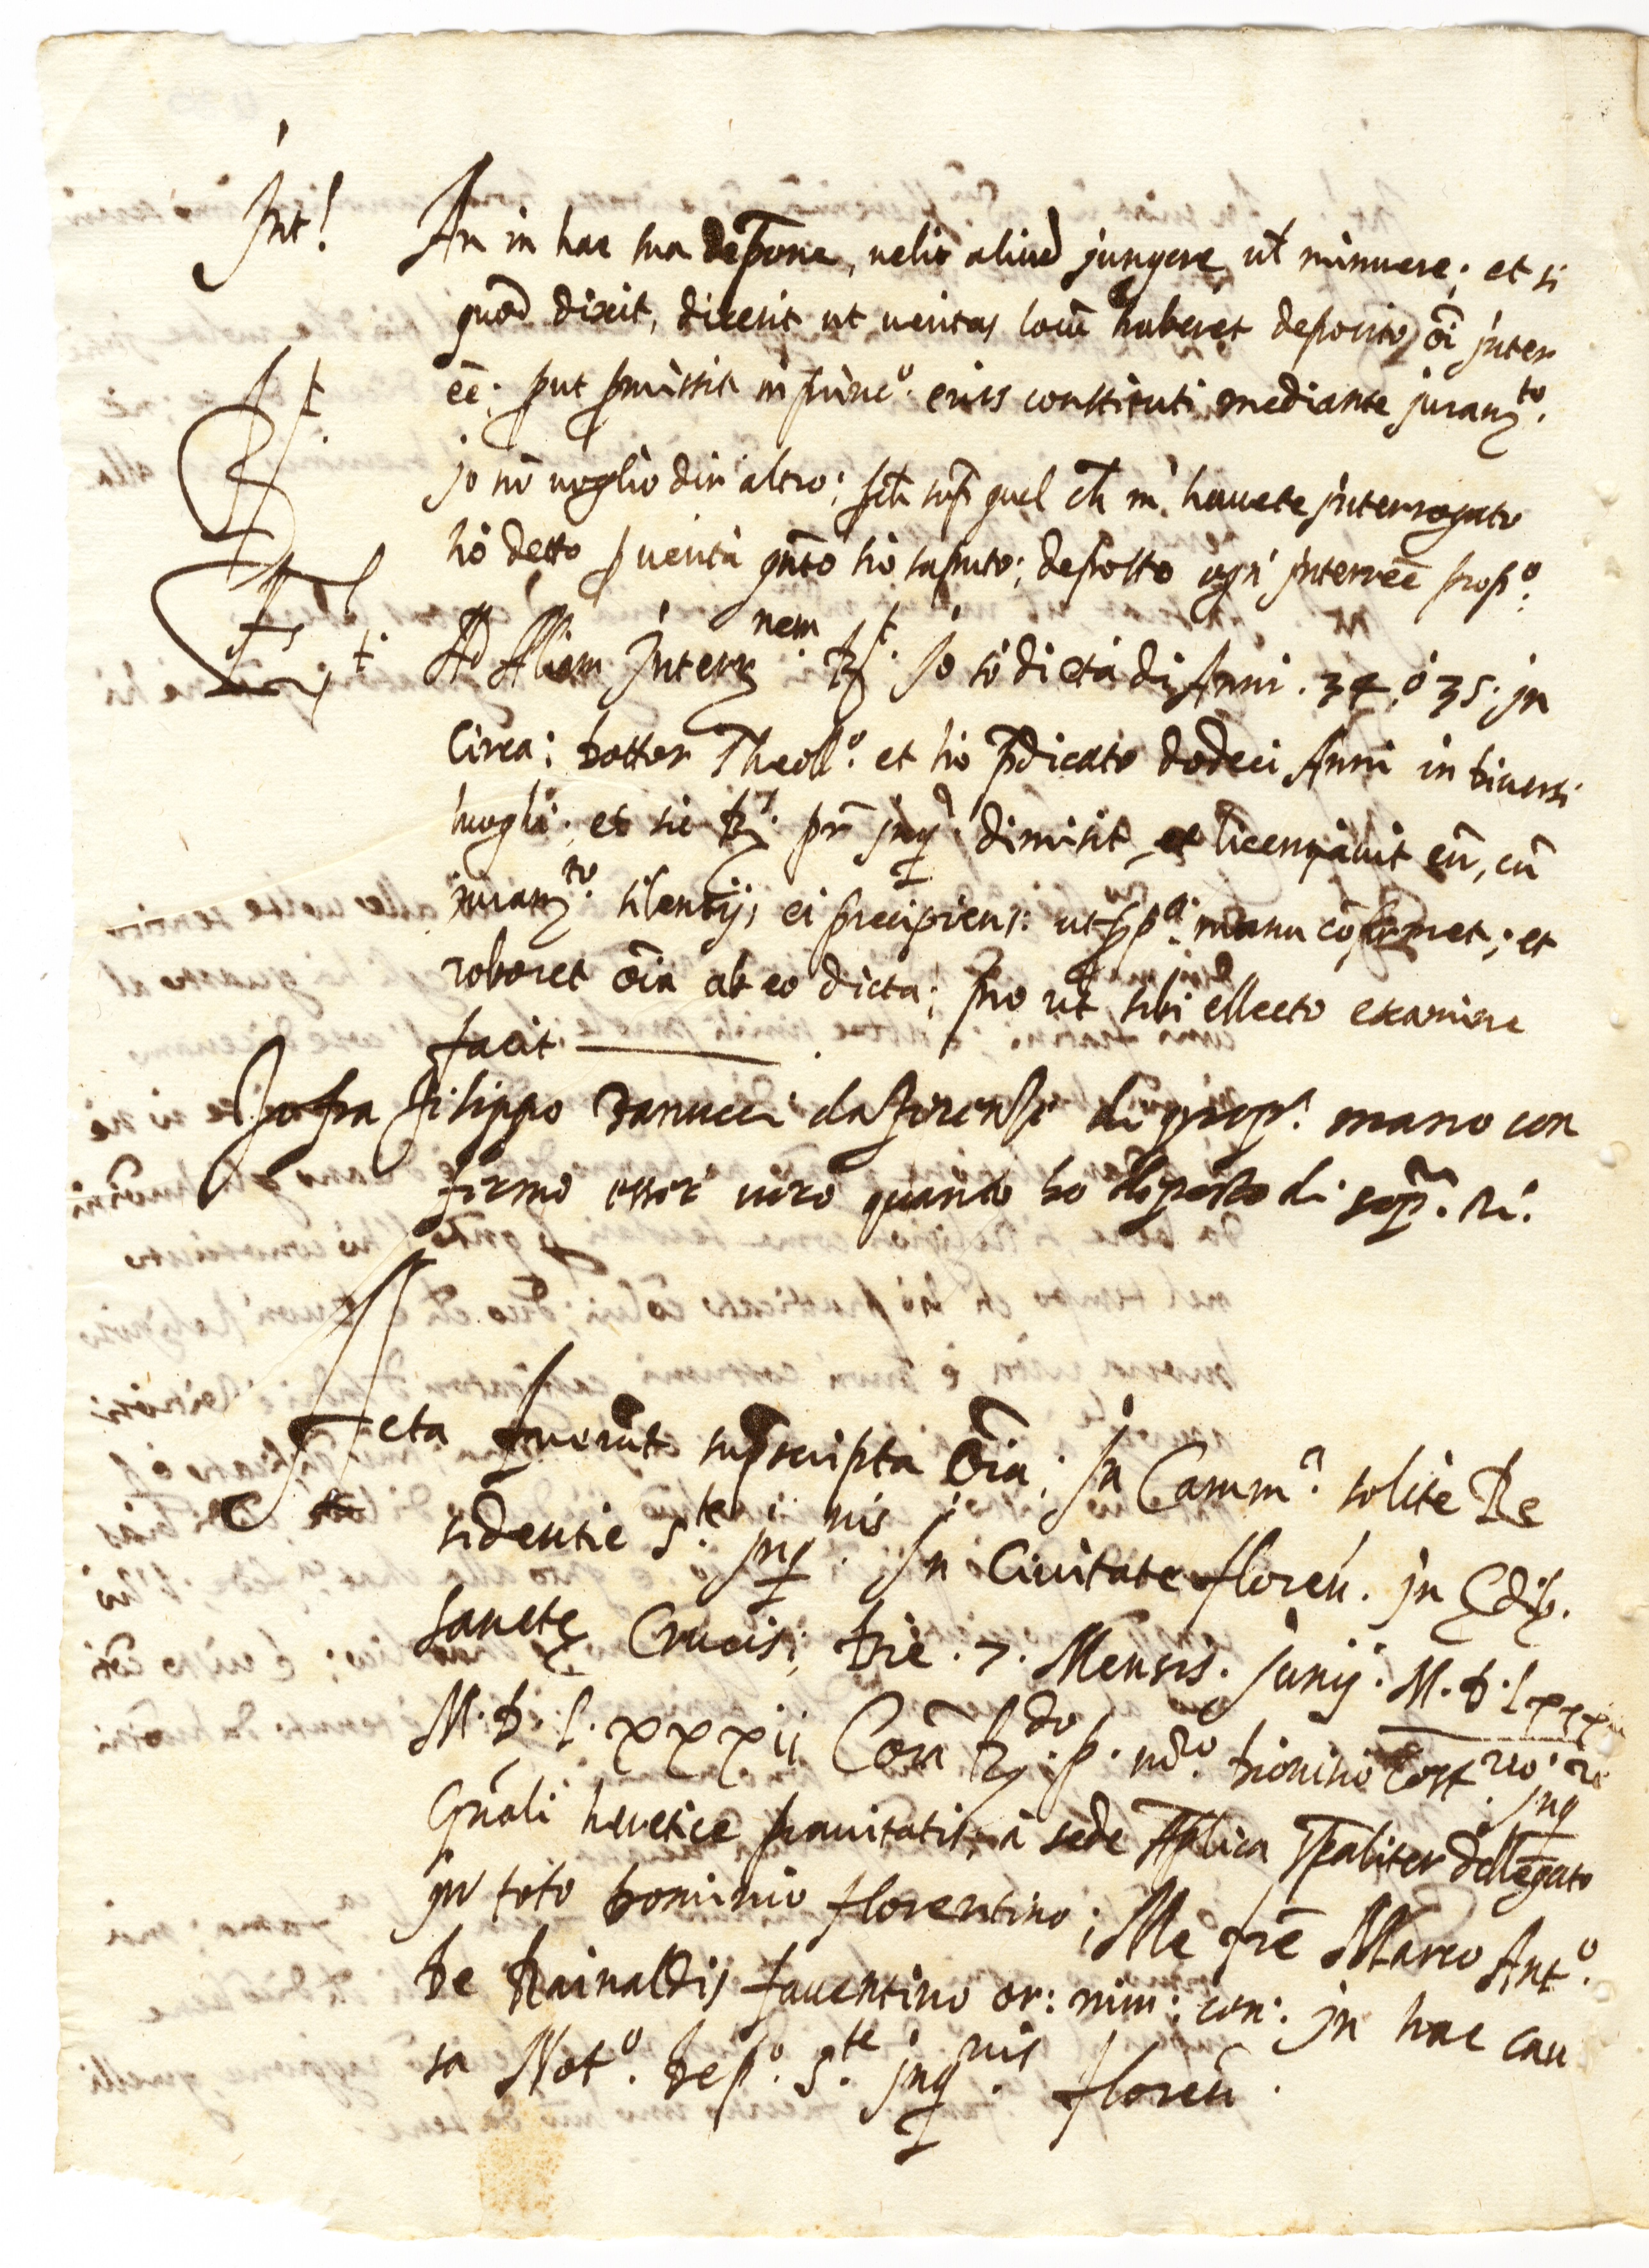 Int! An in hac sua depōne, velit aliud jungere ut minuere; et si
quod dixit, dixerit ut veritas locū haberet deposito oī inter
eē; put pmissit in princ.º eius constituti mediante juram.to
Rt jo nō voglio dir altro; sol sup quel ch̄ m' havete interrogato
hò detto p verità qnto hò saputo; deposto ogn' interreē prop.º
Ad Aliam Interr.nem Rt. Jo sò dietà di Anni. 34. ò 35. jn
Circa; Dottor Theol.º et hò pdicato dodeci Anni in diversi
luoghi; et sic R. pr̄ jnq.r dimisit et licentiavit eū, cū
juram.to silentij; ei precipiens: ut pp.a manu cōfirmet; et
roboret oīa ab eo dicta; pro ut sibi ellecto examine
facit
Jo fra Filippo Vanucci da Firenze di prop.a mano con
firmo esser vero quanto ho disposto di sop.a
Acta fuerūt supscripta Oīa; Jn Camm.a solite Re
sidentie S.te jnq.nis Jn Civitate floreń. jn Ędib.
Sanctę Crucis; Die. 7. Mensis. Junij. M.D.lxxx
M.D.l.xxxii Corā R.do p. m̄ro Dionisio Cost.rio jnq.re
Gn̄ali heretice pravitatis, à sede Apl̄ica spāliter dellegato
jn toto Dominio florentino; Me frē Marco Ant.º
De Rainaldis faventino or: min: con: jn hac cau
sa Not.º Dep.º S.te jnq.nis floreū.